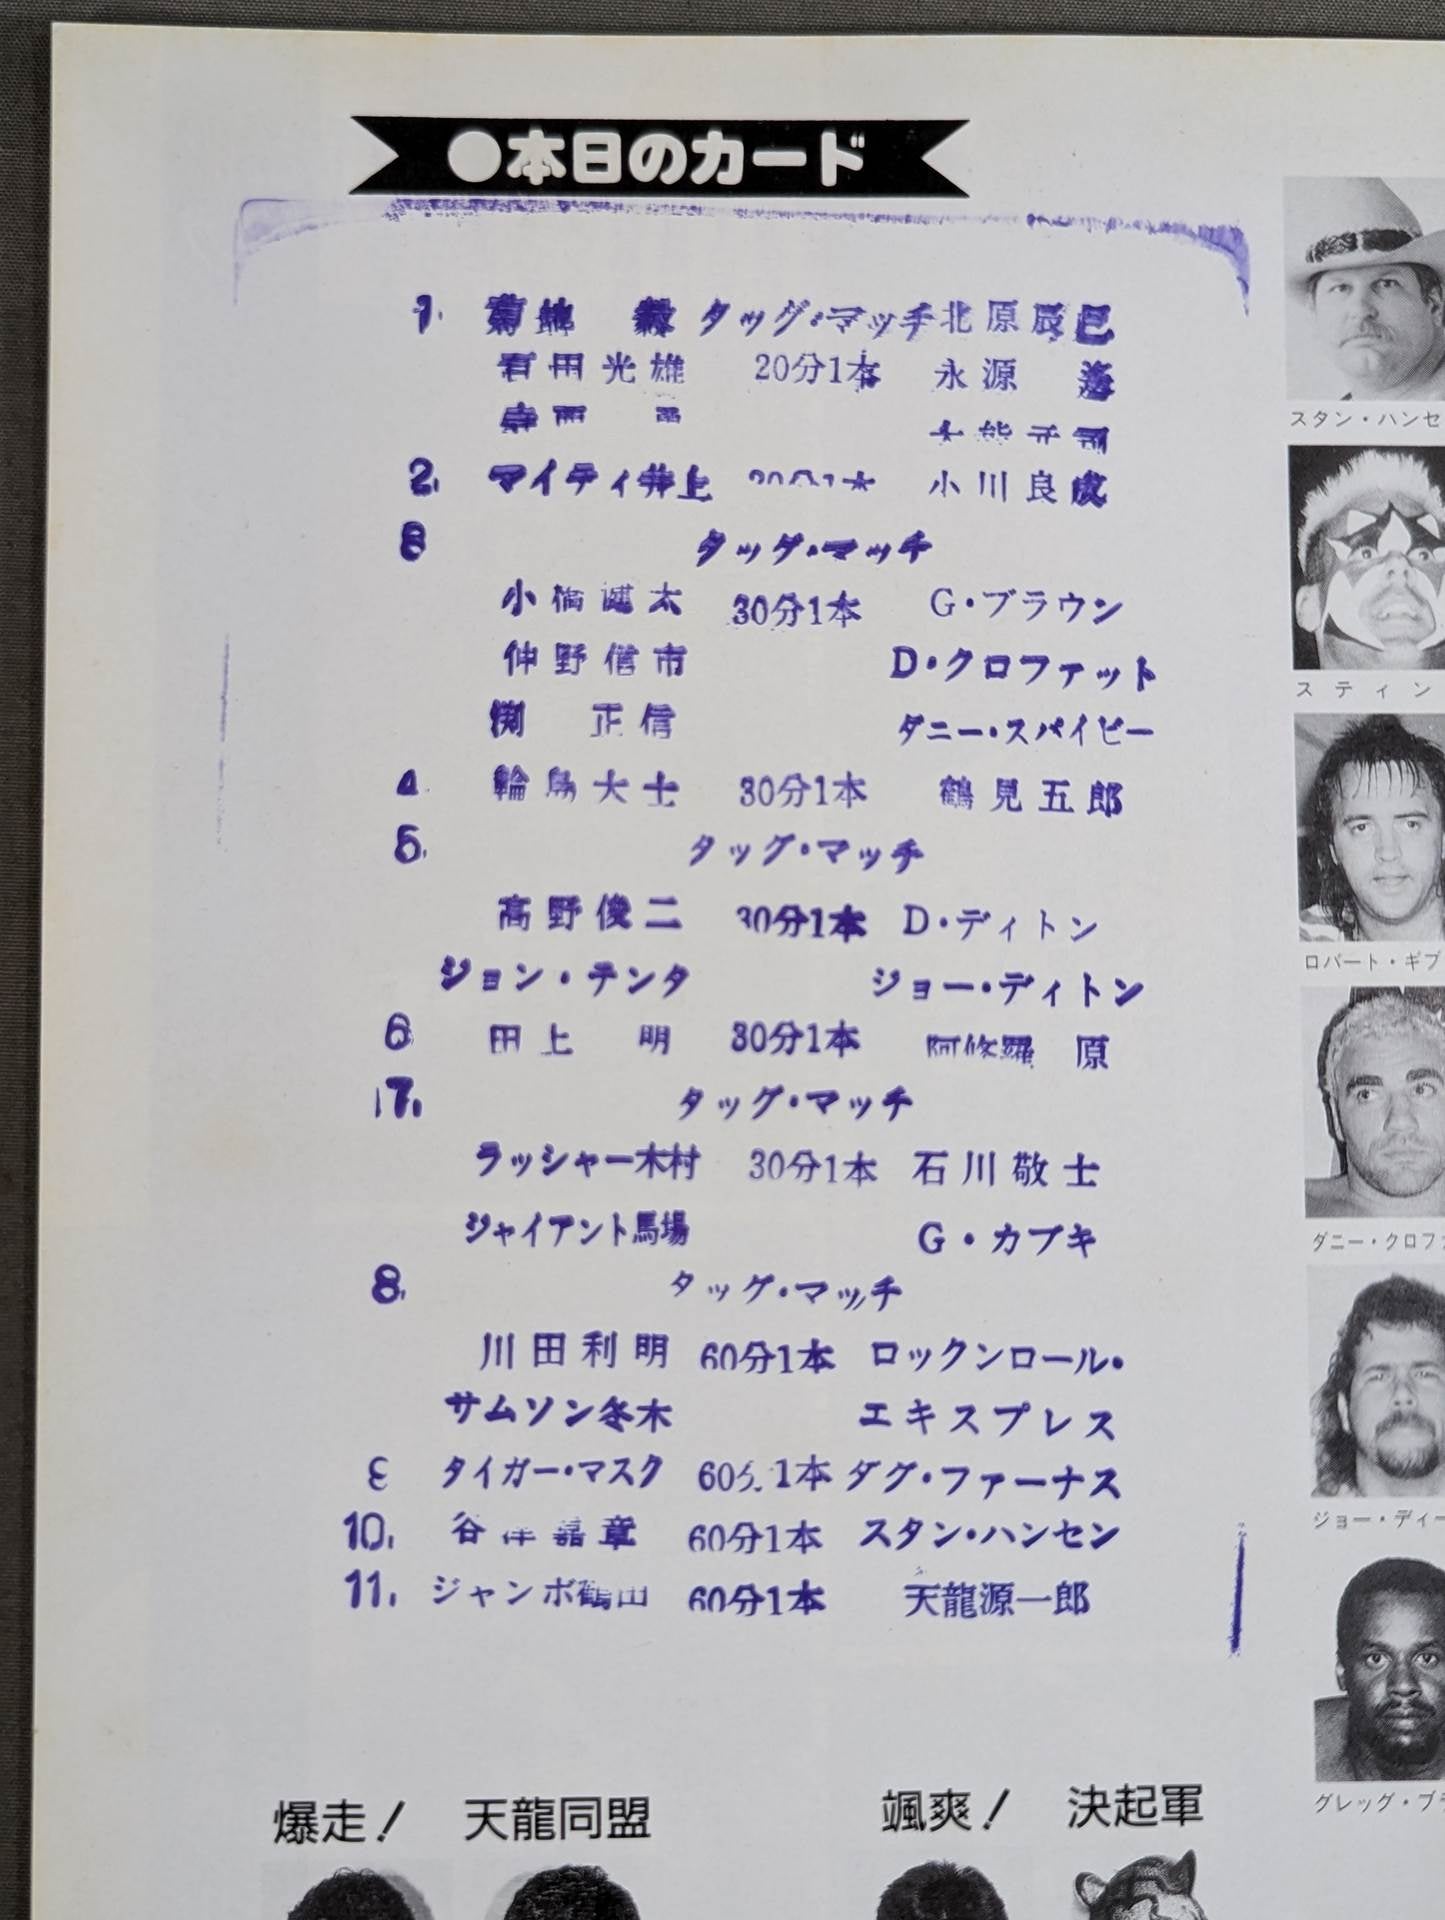 ●本日のカード
1. 菊地 毅 タッグ・マッチ 北原辰巳
百田光雄 20分1本 永源 遙
寺西 勇 大熊元司
2. マイティ井上 20分1本 小川良成
3 タッグ・マッチ
小橋健太 30分1本 G・ブラウン
仲野信市 D・クロファット
渕 正信 ダニー・スパイビー
4 輪島大士 30分1本 鶴見五郎
5. タッグ・マッチ
高野俊二 30分1本 D・ディトン
ジョン・テンタ ジョー・ディトン
6 田上 明 30分1本 阿修羅 原
7. タッグ・マッチ
ラッシャー木村 30分1本 石川敬士
ジャイアント馬場 G・カブキ
8. タッグ・マッチ
川田利明 60分1本 ロックンロール・
サムソン冬木 エキスプレス
9 タイガー・マスク 60分1本 ダグ・ファーナス
10. 谷津嘉章 60分1本 スタン・ハンセン
11. ジャンボ鶴田 60分1本 天龍源一郎
スタン・ハンセ
スティン
ロバート・ギブ
ダニー・クロフ
ジョー・ディー
グレッグ・ブラ
爆走！ 天龍同盟
颯爽！ 決起軍